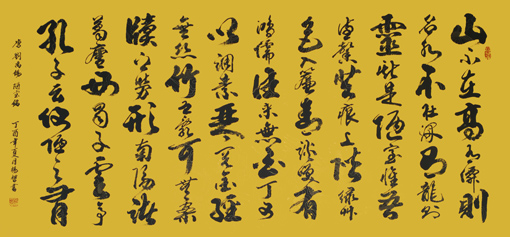 山不在高有仙則
名水不在深有龍則
靈斯是陋室惟吾
德馨苔痕上階綠草
色入簾青談笑有
鴻儒往來無白丁可
以調素琴閱金經
無絲竹之亂耳無案
牘之勞形南陽諸
葛廬西蜀子雲亭
孔子云何陋之有
唐劉禹錫陋室銘
丁酉年夏月楊書